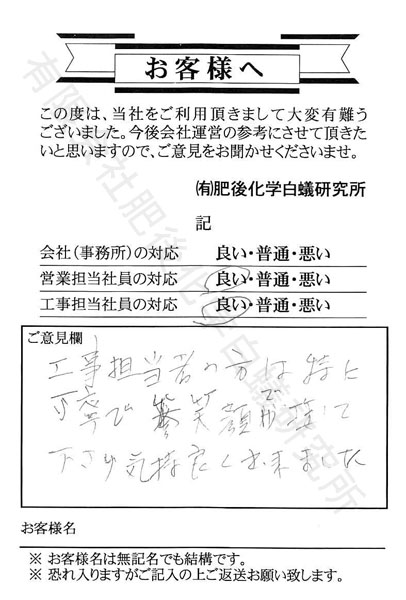 お客様へ
この度は、当社をご利用頂きまして大変有難う
ございました。今後会社運営の参考にさせて頂きた
いと思いますので、ご意見をお聞かせくださいませ。
㈲肥後化学白蟻研究所
記
会社(事務所)の対応 良い・普通・悪い
営業担当社員の対応 良い・普通・悪い
工事担当社員の対応 良い・普通・悪い
ご意見欄
工事担当者の方は特に
丁寧で 笑顔で 接して
下さり気持良く出来ました
お客様名
※ お客様名は無記名でも結構です。
※ 恐れ入りますがご記入の上ご返送お願い致します。
有限会社肥後化学白蟻研究所